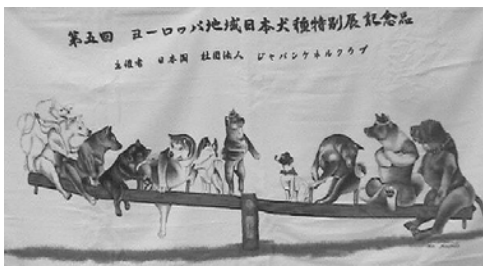 第五回 ヨーロッパ地域日本犬種特別展記念品
主催者 日本国 社団法人 ジャパンケネルクラブ